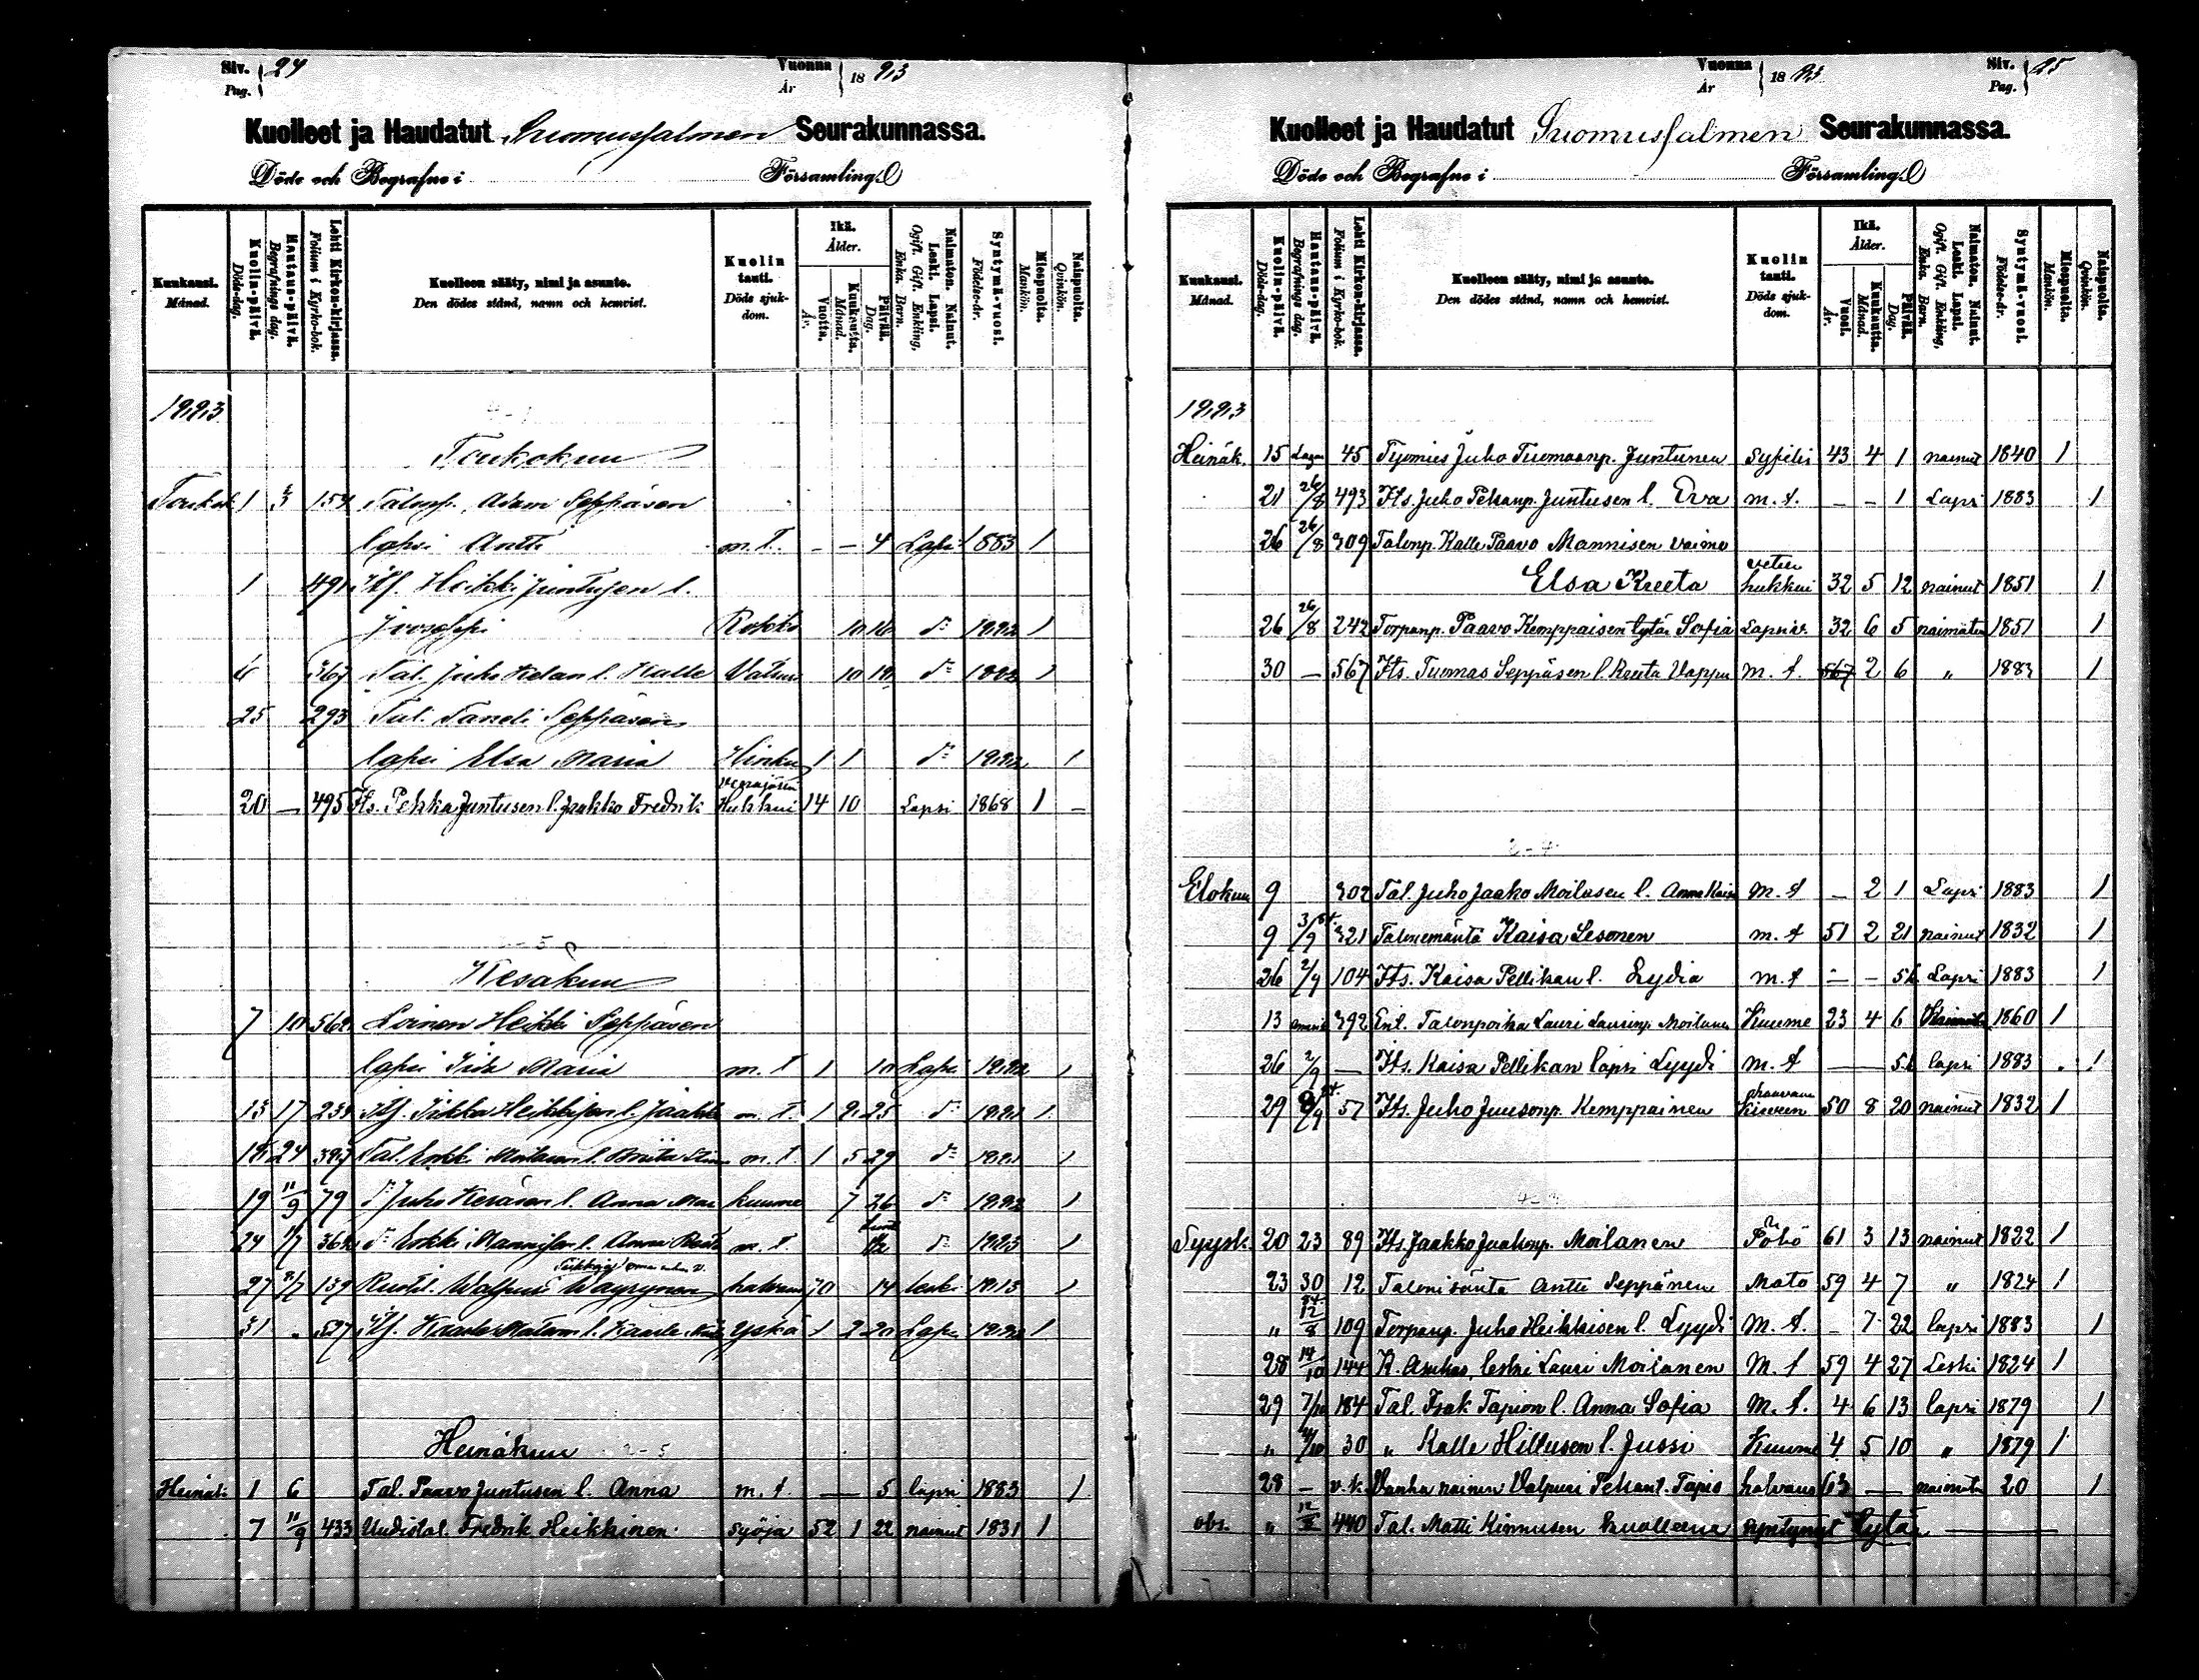 Siv. 24
Pag.
Vuonna 1883
År
Kuolleet ja Haudatut Suomussalmen Seurakunnassa.
Döde och Begrafne i Församling
Kuukausi. Månad.
Kuolin-päivä. Döds-dag.
Hautaus-päivä. Begrafnings dag.
Lehti Kirkon-kirjassa. Folium i Kyrko-bok.
Kuolleen sääty, nimi ja asunto. Den dödes stånd, namn och hemvist.
Kuolin tauti. Döds sjukdom.
Ikä. Ålder.
Vuotta. År.
Kuukautta. Månad.
Päivää. Dag.
Naimaton. Nainut. Leski. Lapsi. Ogift. Gift. Enkling, Enka. Barn.
Syntymä-vuosi. Födelse-år.
Miespuolta. Mankön.
Naispuolta. Qvinkön.
1883
Toukokuu
Toukok. 1 3 154 Talonp. Adam Seppäsen
lapsi Antti m.t. - - 4 Lapsi 1883 1
1 491 Its. Heikki Juntusen l.
Jooseppi Rokko 10 16 d:o 1882 1
6 367 Tal. Juho Kelan l. Kalle 10 18 d:o 1882 1
25 293 Tal. Taneli Seppäsen
lapsi Elsa Maria Hinku 1 1 d:o 1882 1
20 — 495 Its. Pekka Juntusen l. Jaakko Fredrik Hukkui 14 10 Lapsi 1868 1 –
Kesäkuu
7 10 562 Loinen Heikki Seppäsen
lapsi Maria m.t. 1 10 Lapsi 1882 1
13 17 239 Its. Pekka Heikkisen l. Jaakko m.t. 1 8 25 d:o 1881 1
18 24 Tal. Erkki Moilasen l. Briita m.t. 1 5 29 d:o 1881 1
19 11/9 79 d:o Juho Keräsen l. Anna Mar. kuume 7 26 d:o 1882 1
24 Erkki Mannisen l. Anna m.t. 1/2 d:o 1883 1
27 139 Ruotil. Walpuri Wäyrynen halvaus 70 14 leski 1813 1
31 „ 527 Its. yskä 1 2 20 Lapsi 1882 1
Heinäkuu
Heinäk. 1 6 Tal. Paavo Juntusen l. Anna m.t. — 5 lapsi 1883 1
7 11/9 433 Uudistal. Fredrik Heikkinen syöjä 52 1 22 nainut 1831 1
Vuonna 1883
År
Siv. 25
Pag.
Kuolleet ja Haudatut Suomussalmen Seurakunnassa.
Döde och Begrafne i Församling
Kuukausi. Månad.
Kuolin-päivä. Döds-dag.
Hautaus-päivä. Begrafnings dag.
Lehti Kirkon-kirjassa. Folium i Kyrko-bok.
Kuolleen sääty, nimi ja asunto. Den dödes stånd, namn och hemvist.
Kuolin tauti. Döds sjukdom.
Ikä. Ålder.
Vuosi. År.
Kuukautta. Månad.
Päivää. Dag.
Naimaton. Nainut. Leski. Lapsi. Ogift. Gift. Enkling, Enka. Barn.
Syntymä-vuosi. Födelse-år.
Miespuolta. Mankön.
Naispuolta. Qvinkön.
1883
Heinäk. 15 45 Työmies Juho Tuomaanp. Juntunen syfilis 43 4 1 nainut 1840 1
21 26/8 493 Its. Juho Pekanp. Juntusen l. Eva m.t. — – 1 Lapsi 1883 1
26 26/8 309 Talonp. Kalle Paavo Mannisen vaimo
Elsa Kreeta veteen hukkui 32 5 12 nainut 1851 1
26 26/8 242 Torpanp. Paavo Kemppaisen tytär Sofia Lapsiv. 32 6 5 naimaton 1851 1
30 — 567 Its. Tuomas Seppäsen l. Reeta Vappu m.t. 567 2 6 „ 1883 1
Elokuu 9 302 Tal. Juho Jaako Moilasen l. Anna Kaisa m.t — 2 1 Lapsi 1883 1
9 3/9 321 Talonemäntä Kaisa Lesonen m.t 51 2 21 nainut 1832 1
26 2/9 104 Its. Kaisa Pellikan l. Lydia m.t — – 5 Lapsi 1883 1
13 392 Ent. Talonpoika Lauri Laurinp Moilanen Kuume 23 4 6 1860 1
26 2/9 — Its. Kaisa Pellikan lapsi Lyydi m.t — 5 lapsi 1883 1
29 9/9 57 Its. Juho Juusonp. Kemppainen 50 8 20 nainut 1832 1
Syysk. 20 23 89 Its. Jaakko Jaakonp. Moilanen Pöhö 61 3 13 nainut 1822 1
23 30 12 Talonisäntä Antti Seppänen Mato 59 4 7 „ 1824 1
„ 12/8 109 Torpanp. Juho Heikkisen l. Lyydi m.t. – 7 22 lapsi 1883 1
28 14/10 144 leski Lauri Moilanen m.t 59 4 27 Leski 1824 1
29 7/10 184 Tal. Isak Tapion l. Anna Sofia m.t. 4 6 13 lapsi 1879 1
„ 30 „ Kalle Hiltusen l. Jussi Kuume 4 5 10 „ 1879 1
28 – v.k. Vanha nainen Valpuri Pekant. Tapio halvaus 63 — naimaton 20 1
obs. „ 440 Tal. Matti Kinnusen kuolleena syntynyt tytär